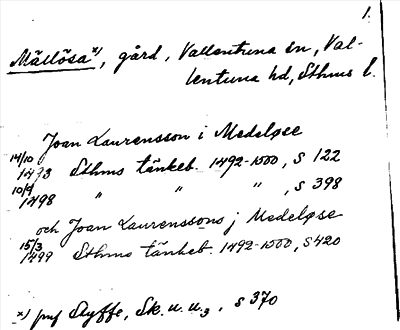 1.
Mällösa x), gård, Vallentuna sn, Val-
lentuna hd, Sthms l.
Joan Laurensson i Medeløse
14/10 1493 Sthms tänkeb. 1492-1500, s 122
10/9 1498 " " ", s 398
och Joan Laurenssons j Medeløse
15/3 1499 Sthms tänkeb. 1492-1500, s 420
x) jmf Styffe, Sk. u. u.3, s 370